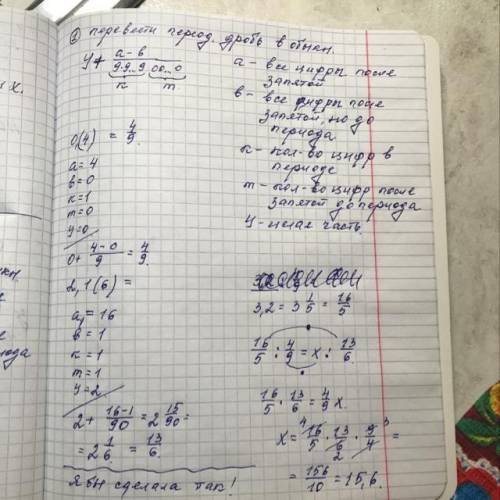 ① перевести период. дробь в обыкн.
У + (а - в)/(99...9 00...0)
к m
а - все цифры после
запятой
в - все цифры после
запятой, но до
периода
к - кол-во цифр в
периоде
m - кол-во цифр после
запятой до периода
У - целая часть.
0,(4) = 4/9.
а = 4
в = 0
к = 1
m = 0
у = 0
0 + (4 - 0)/9 = 4/9.
2,1(6) =
а = 16
в = 1
к = 1
m = 1
У = 2
2 + (16 - 1)/90 = 2 15/90 =
= 2 1/6 = 13/6.
Я бы сделала так!
3,2 = 3 1/5 = 16/5
16/5 : 4/9 = х : 13/6.
16/5 · 13/6 = 4/9 х.
х = 16/5 · 13/6 · 9/4 =
4 2 3
= 156/10 = 15,6.